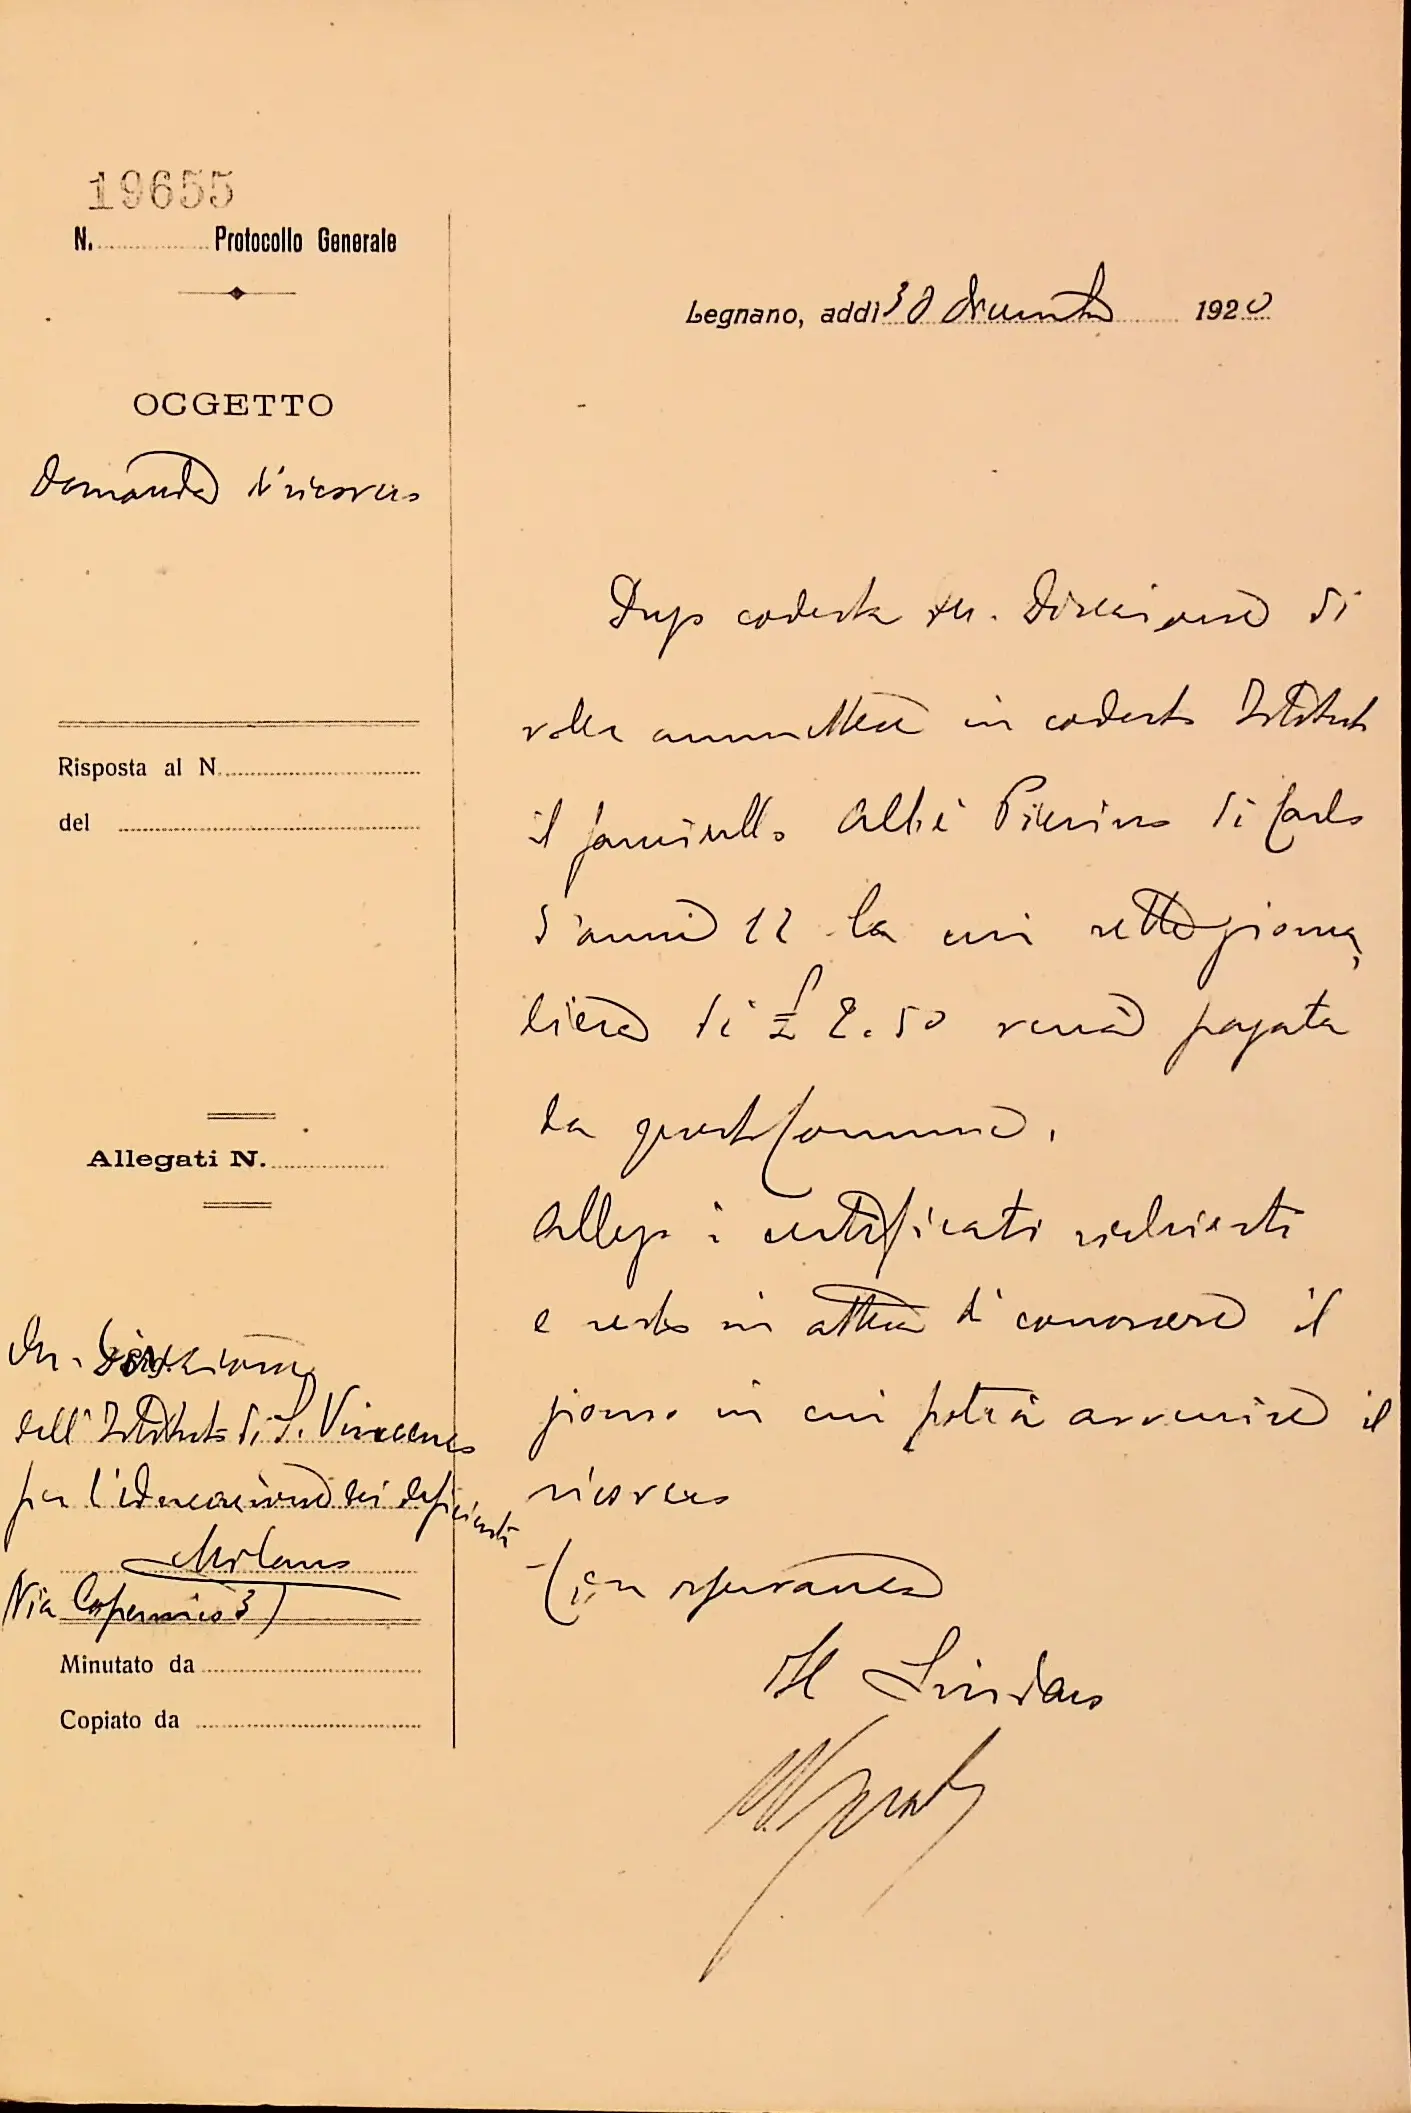 19655
N. Protocollo Generale
Legnano, addì 30 dicembre 1920
OGGETTO
Domanda di ricovero
Prego codesta On. Direzione di
voler ammettere in codesto Istituto
il fanciullo Albè Pierino di Carlo
d'anni 12 la cui retta giorna,
liera di £ 2.50 verrà pagata
da questo Comune.
Allego i certificati richiesti
e resto in attesa di conoscere il
giorno in cui potrà avvenire il
ricovero
Con osservanza
Il Sindaco
Risposta al N.
del
Allegati N.
On. Direzione
dell'Istituto di S. Vincenzo
per l'educazione dei deficienti
Milano
Via Copernico 3
Minutato da
Copiato da